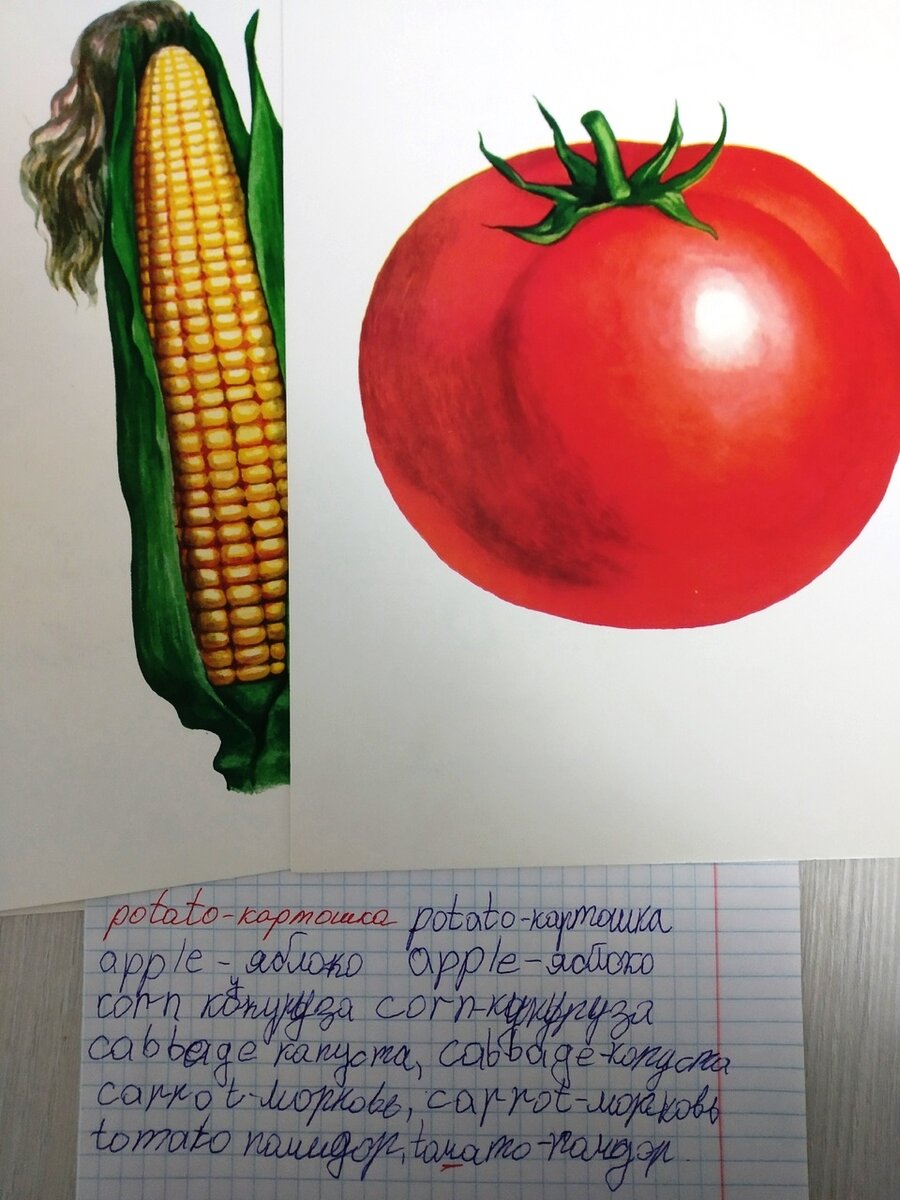 potato-картошка potato-картошка
apple-яблоко apple-яблоко
corn кукуруза corn-кукуруза
cabbage капуста, cabbage-копуста
carrot-морковь, carrot-морковь
tomato памидор, томато-